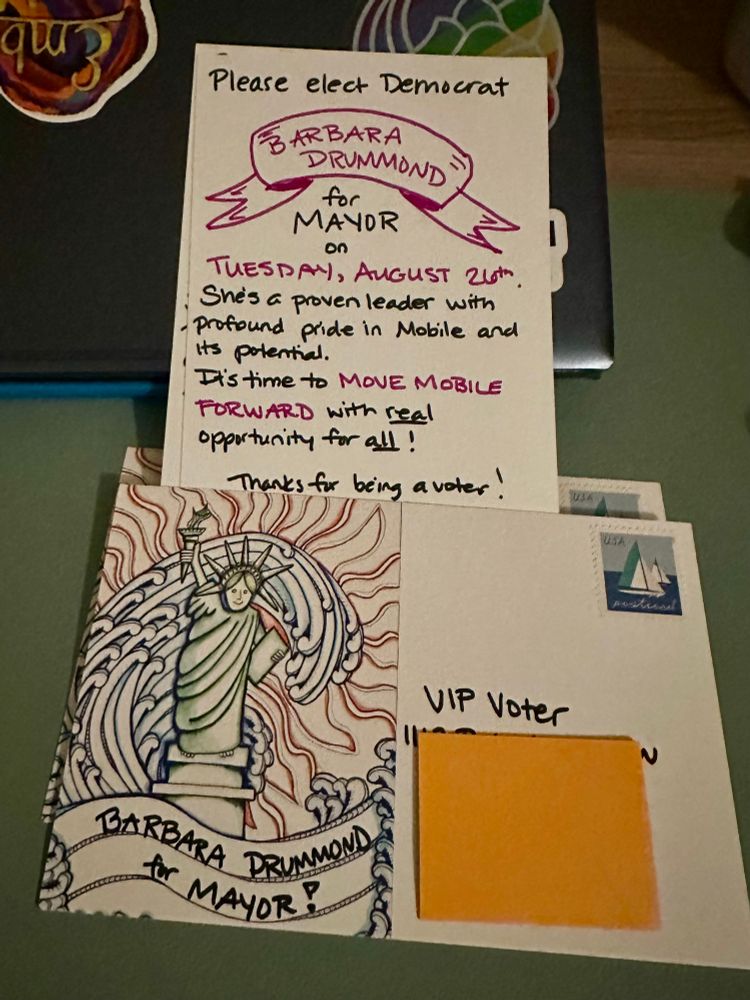 Please elect Democrat
BARBARA
DRUMMOND
for
MAYOR
on
TUESDAY, AUGUST 26th.
She's a proven leader with
profound pride in Mobile and
its potential.
It's time to MOVE MOBILE
FORWARD with real
opportunity for all!
Thanks for being a voter!
USA
USA
postcard
VIP Voter
BARBARA DRUMMOND
for MAYOR!